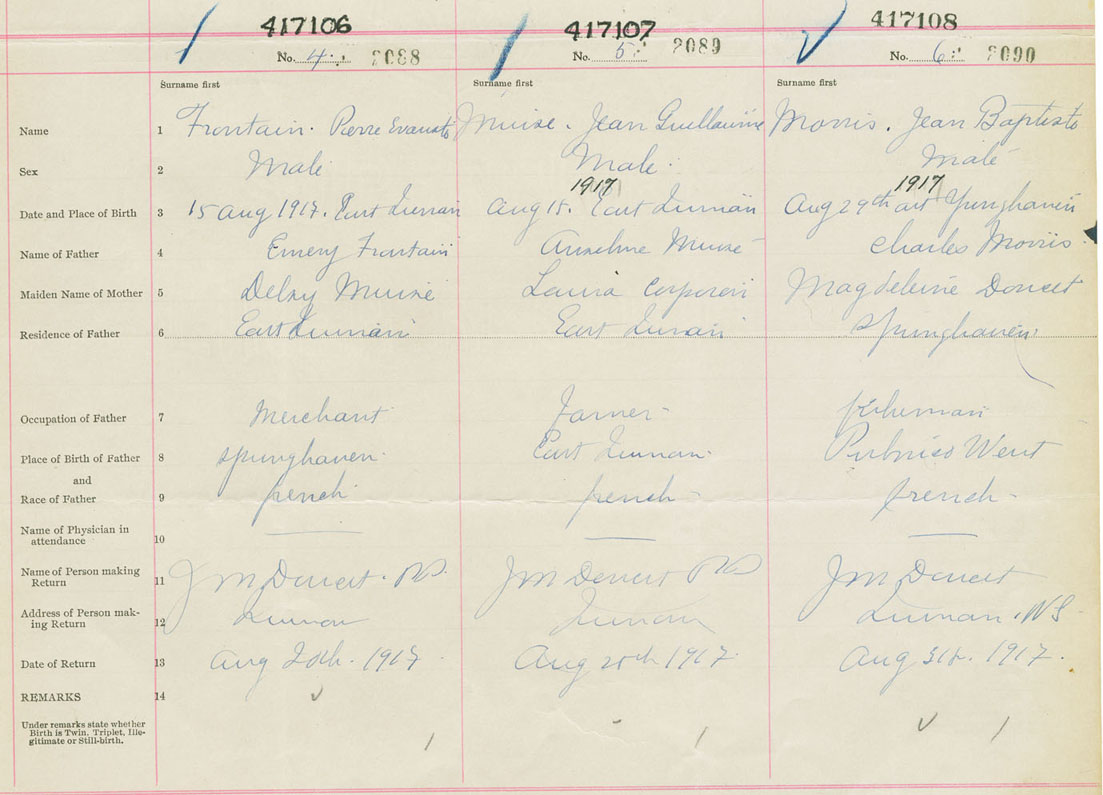 417106 417107 417108
No. 4 2088 No. 5 2089 No. 6 2090
Surname first Surname first Surname first
Name 1 Frontain. Pierre Evariste Muise. Jean Guillaume Morris. Jean Baptiste
Sex 2 Male Male. Male
1917 1917
Date and Place of Birth 3 15 Aug 1917. East Aug 18. East Aug 29th at Springhaven
Name of Father 4 Emery Frontain Anselme Muise Charles Morris
Maiden Name of Mother 5 Delny Muise Laura Corporon Magdeleine Doucet
Residence of Father 6 East East Springhaven
Occupation of Father 7 Merchant Farmer fisherman
Place of Birth of Father 8 Springhaven. East Pubnico West
and
Race of Father 9 french french french
Name of Physician in
attendance 10
Name of Person making
Return 11 J M Doucet. J M Doucet J M Doucet
Address of Person mak-
ing Return 12 N S
Date of Return 13 Aug 20th. 1917 Aug 20th 1917 Aug 31st. 1917.
REMARKS 14
Under remarks state whether
Birth is Twin, Triplet, Ille-
gitimate or Still-birth.